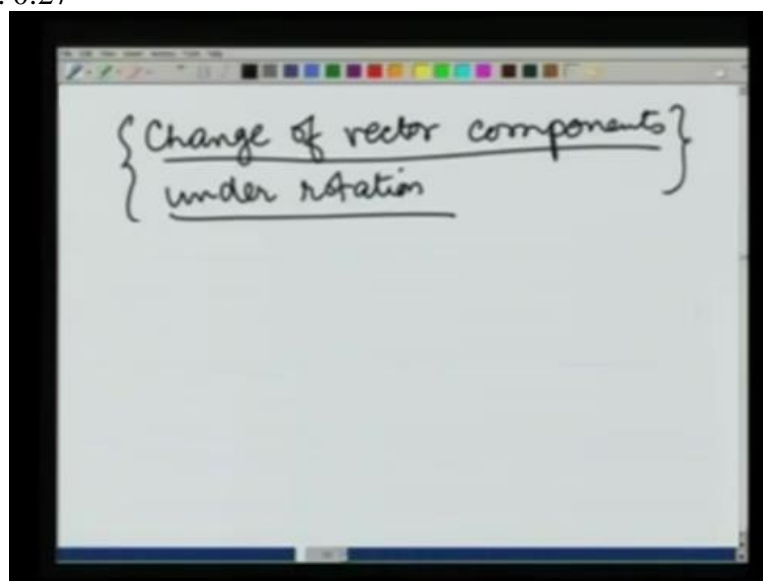 : 0:27
{Change of vector components}
under rotation